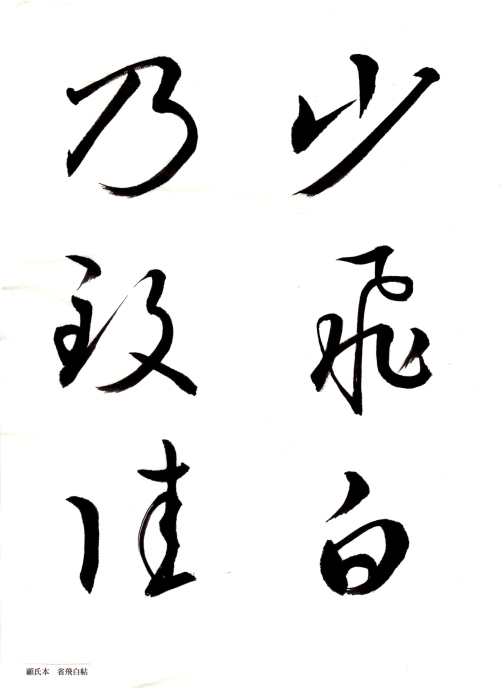 省飛白
乃致佳
顧氏本　省飛白帖